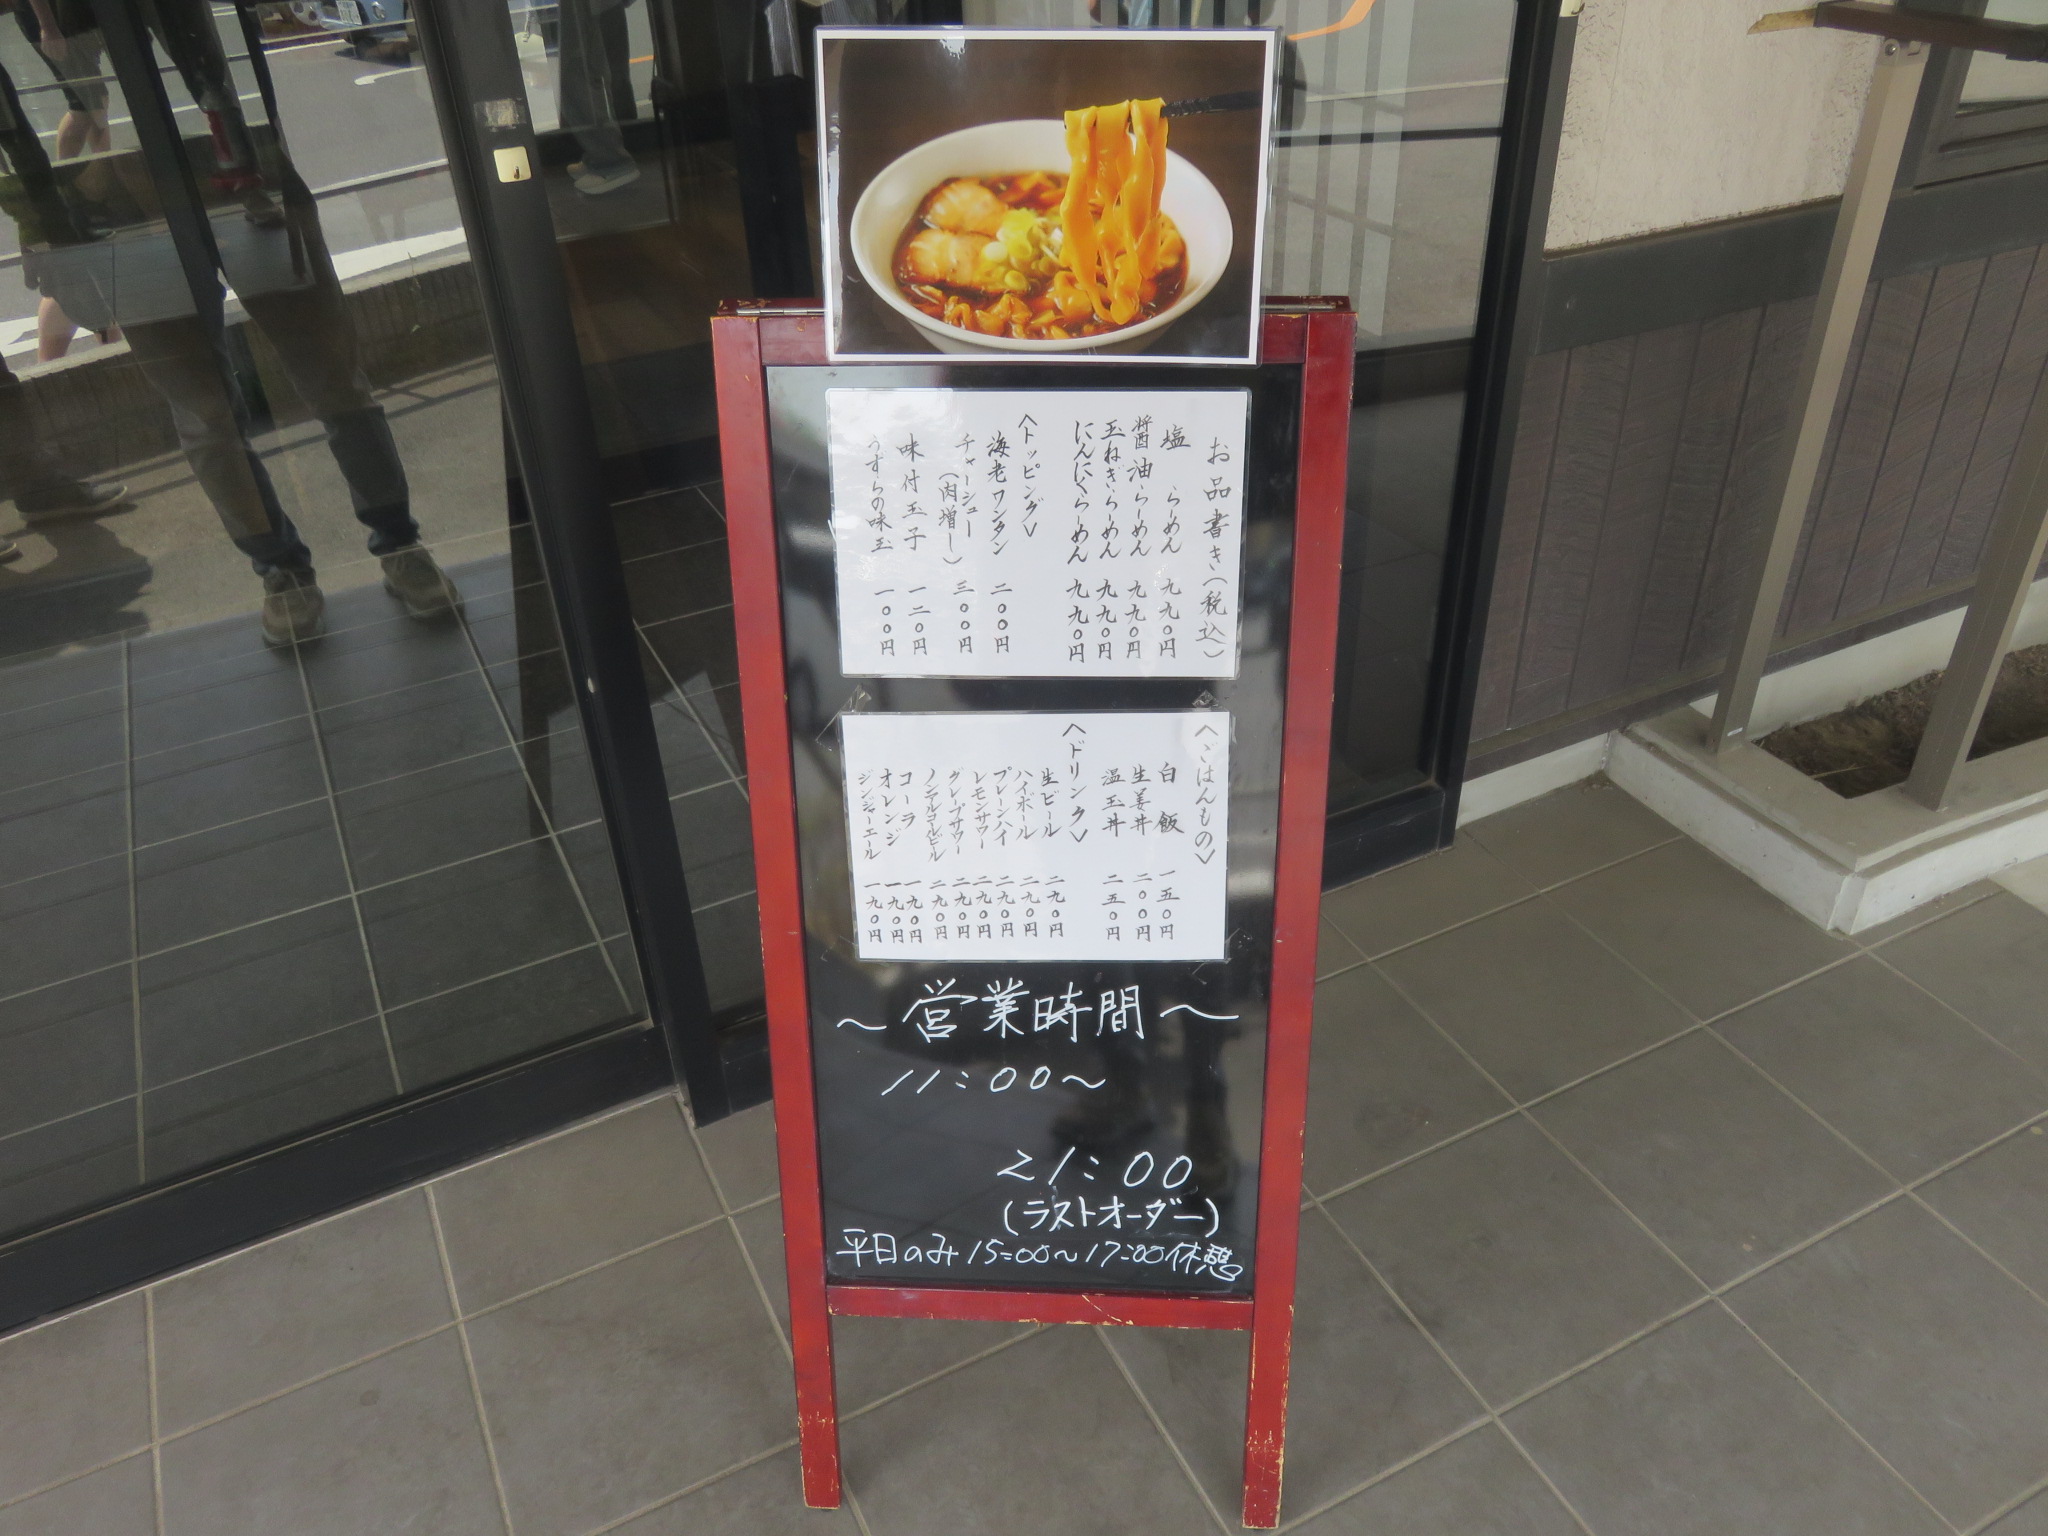 お品書き(税込)
塩 らーめん 九九〇円
醤油らーめん 九九〇円
玉ねぎらーめん 九九〇円
にんにくらーめん 九九〇円
〈トッピング〉
海老ワンタン 二〇〇円
チャーシュー(肉増し) 三〇〇円
味付玉子 一二〇円
うずらの味玉 一〇〇円
〈ごはんもの〉
白飯 一五〇円
生姜丼 二〇〇円
温玉丼 二五〇円
〈ドリンク〉
生ビール 二九〇円
ハイボール 二九〇円
プレーンハイ 二九〇円
レモンサワー 二九〇円
グレープサワー 二九〇円
ノンアルコールビール 二九〇円
コーラ 一九〇円
オレンジ 一九〇円
ジンジャーエール 一九〇円
~営業時間~
11:00~
21:00
(ラストオーダー)
平日のみ15:00~17:00休憩